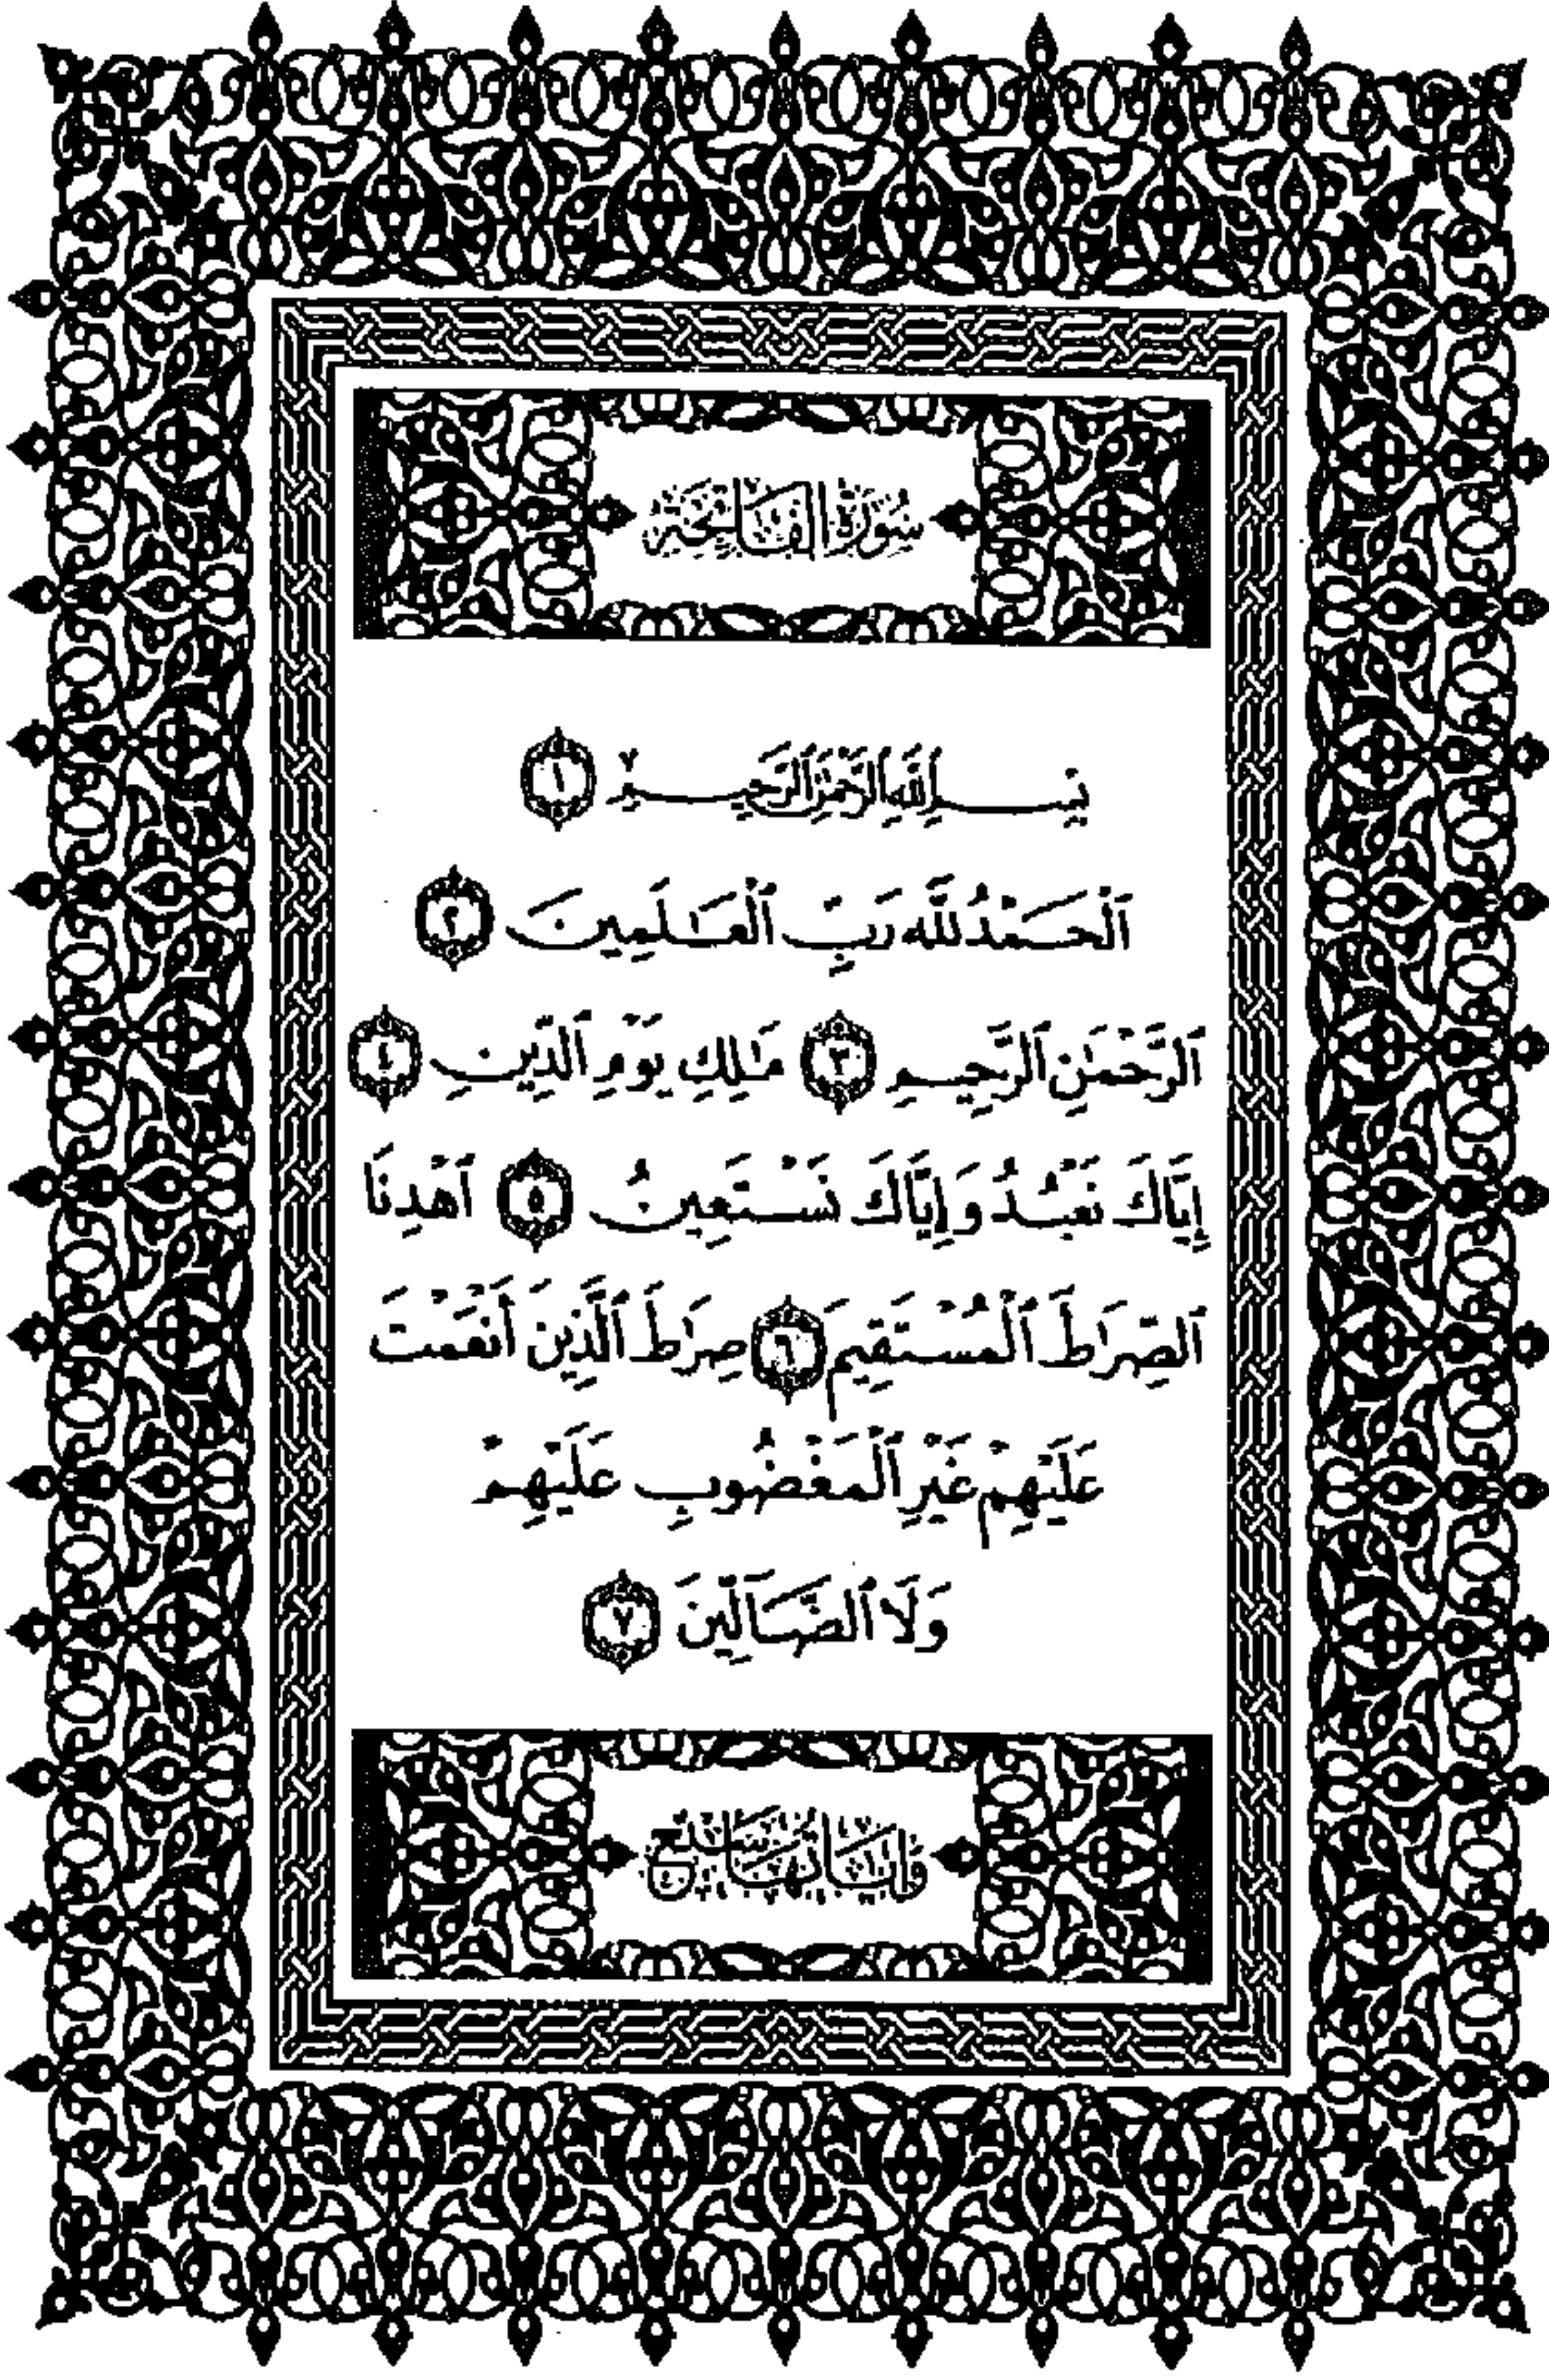 سُورَةُ الفَاتِحَةِ
بِسْمِ اللَّهِ الرَّحْمَٰنِ الرَّحِيمِ ١
ٱلْحَمْدُ لِلَّهِ رَبِّ ٱلْعَـٰلَمِينَ ٢
ٱلرَّحْمَـٰنِ ٱلرَّحِيمِ ٣ مَـٰلِكِ يَوْمِ ٱلدِّينِ ٤
إِيَّاكَ نَعْبُدُ وَإِيَّاكَ نَسْتَعِينُ ٥ ٱهْدِنَا
ٱلصِّرَٰطَ ٱلْمُسْتَقِيمَ ٦ صِرَٰطَ ٱلَّذِينَ أَنْعَمْتَ
عَلَيْهِمْ غَيْرِ ٱلْمَغْضُوبِ عَلَيْهِمْ
وَلَا ٱلضَّآلِّينَ ٧
وَآيَاتُهَا سَبْعٌ